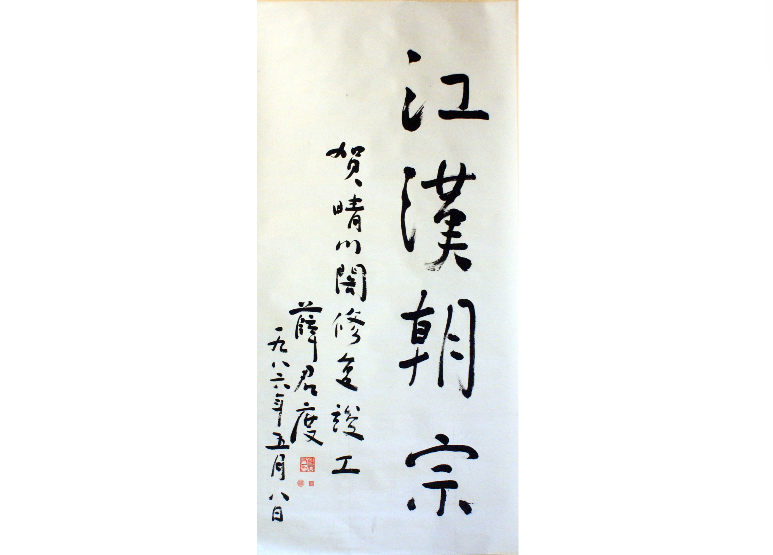 江漢朝宗
賀晴川閣修复竣工
薛君度
一九八六年五月八日